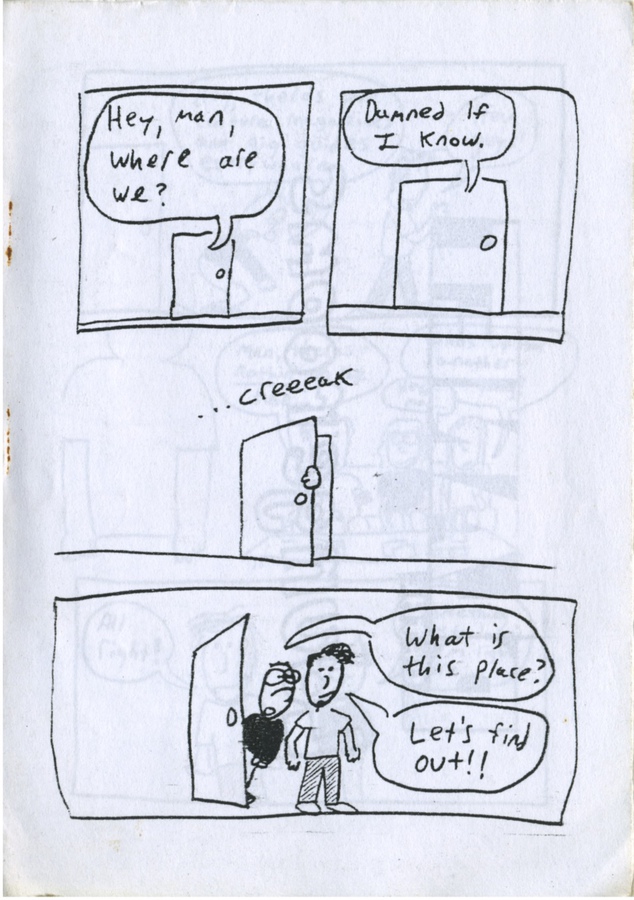 Hey, man,
where are
we?
Damned If
I know.
...creeeak
What is
this place?
Let's find
out!!